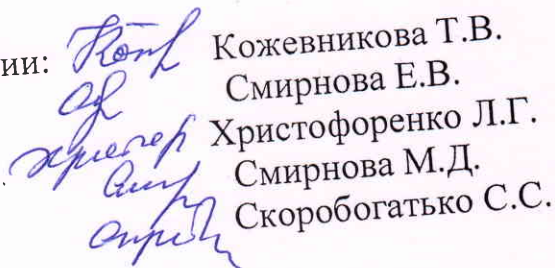 ии: Кожевникова Т.В.
Смирнова Е.В.
Христофоренко Л.Г.
Смирнова М.Д.
Скоробогатько С.С.